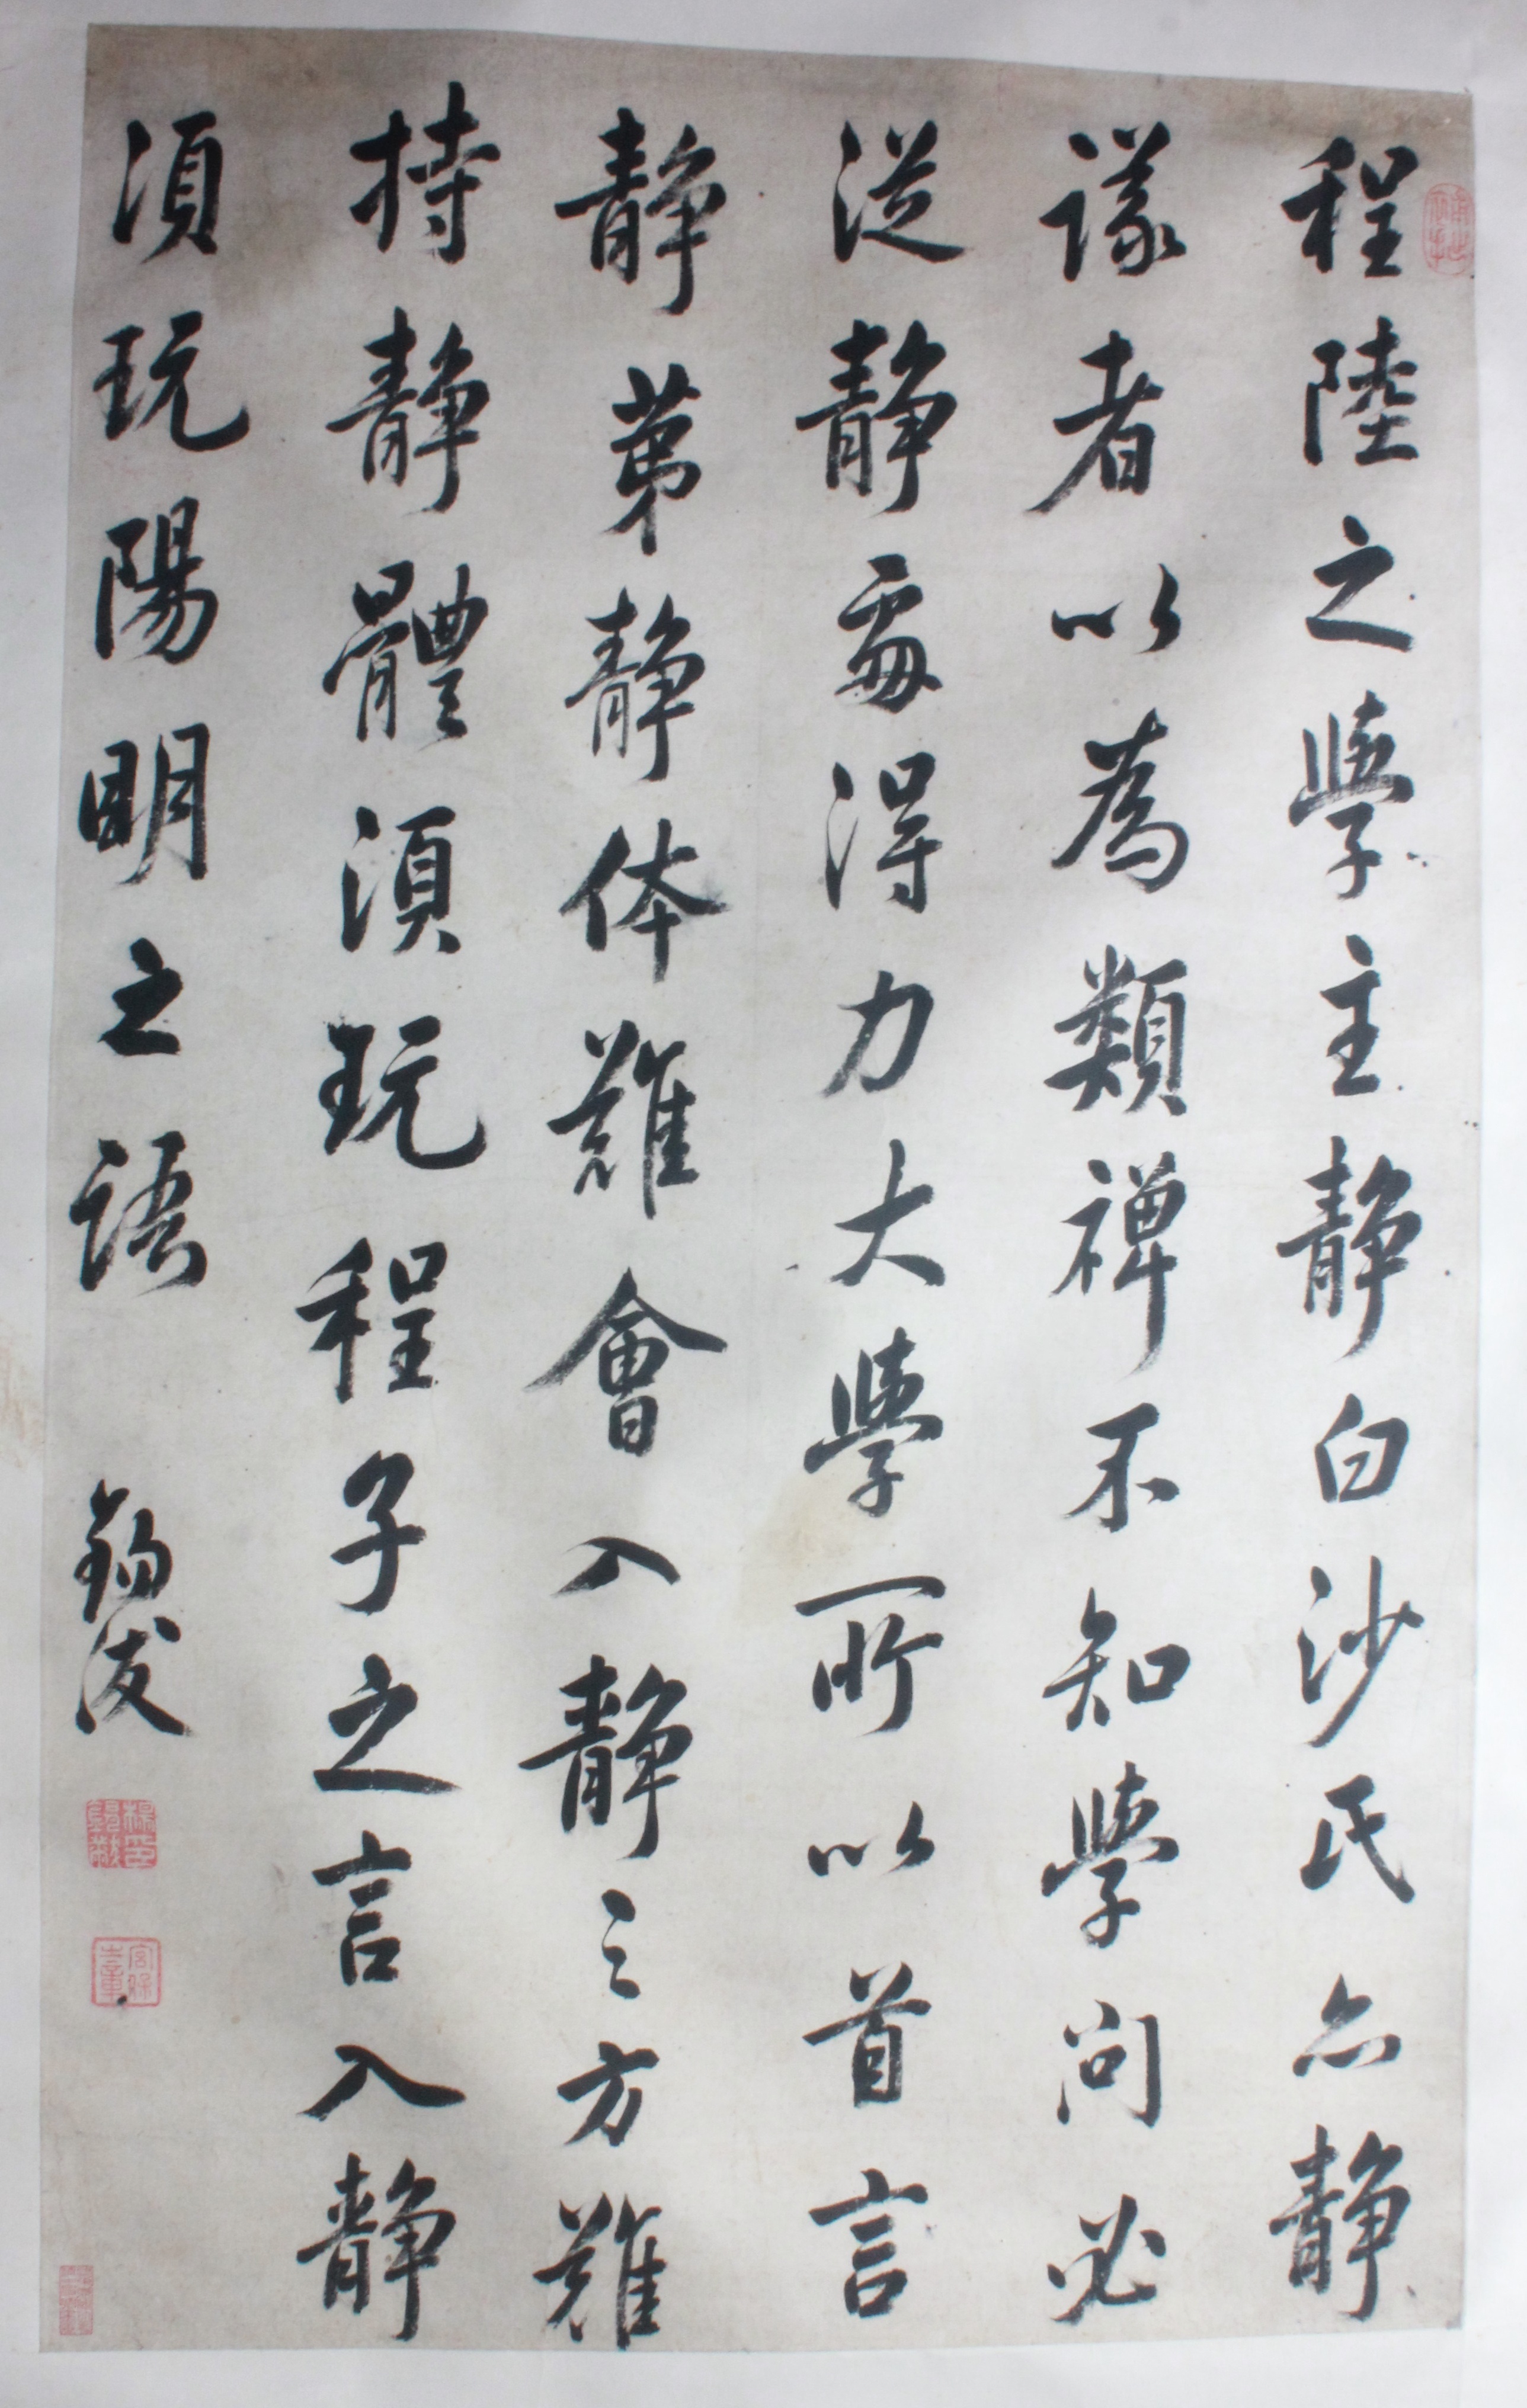 程陸之學主靜白沙氏亦靜
議者以為類禪不知學問必
從靜處得力大學所以首言
靜第靜体難會入靜之方難
持靜體須玩程子之言入靜
須玩陽明之語
錫